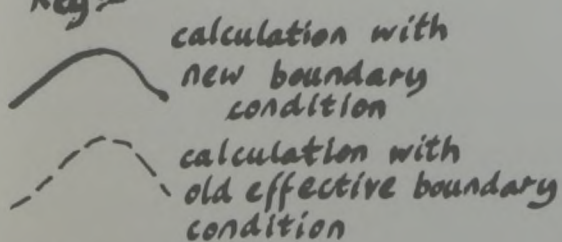 Key
calculation with
new boundary
condition
calculation with
old effective boundary
condition